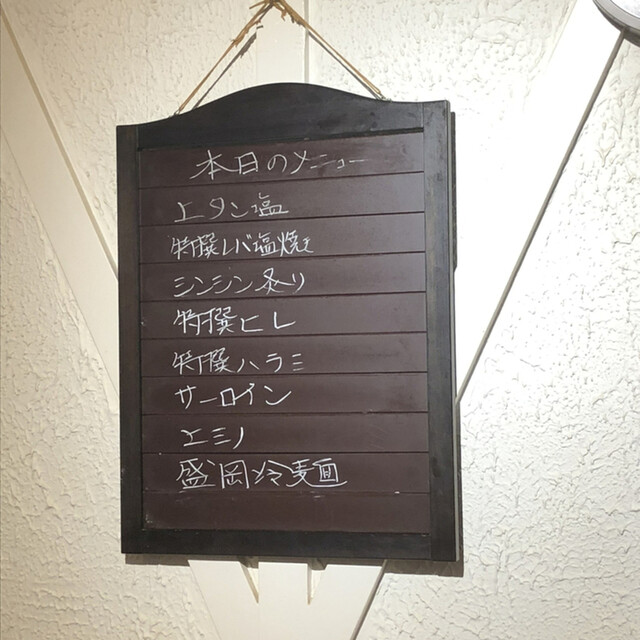 本日のメニュー
上タン塩
特撰レバ塩焼き
シンシン炙り
特撰ヒレ
特撰ハラミ
サーロイン
上ミノ
盛岡冷麺